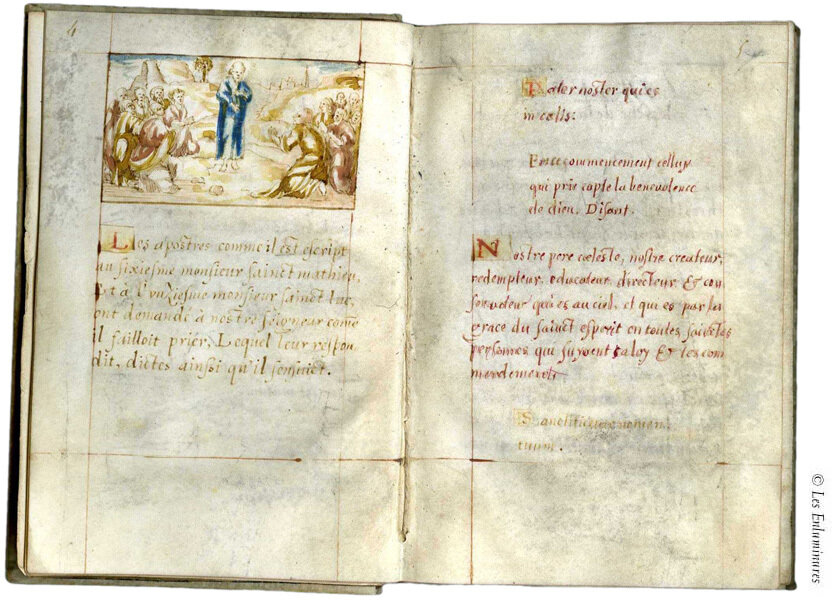 4
Les apostres comme il est escript
au sixiesme monsieur sainct mathieu,
Et a l'unziesme monsieur sainct luc,
ont demandé à nostre seigneur come
il failloit prier. Lequel leur respon
dit, dictes ainsi qu'il sensuict.
5
Pater noster qui es
in cœlis:
En ce commencement celluy
qui prie capte la benevolence
de dieu. Disant.
Nostre pere cœleste, nostre createur,
redempteur, educateur, directeur, & con
servateur qui es au ciel, et qui es par la
grace du sainct esperit en toutes sainctes
personnes qui suyvent ta loy & tes com
mandements
Sanctificetur nomen
tuum.
© Les Enluminures